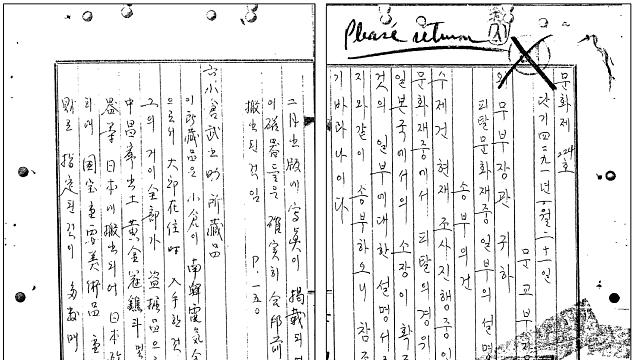 Please return
문화제 224호
단기四二九一년 월二十一일
문고부
외무부장관 귀하
피탈문화재중 일부의 설명
송부의 건
수제건 현재 조사진행중인
문화재중에서 피탈의 경위
일본국에서의 소장이 확
것의 일부에 대한 설명서
지와 같이 송부하오니 참
기 바라나이다
二月出版에 寫眞이 揭載되
이 磁器들은 確實히 合邦前
搬出된 것임 P. 一五〇
六 小倉武之助 所藏品
이 所藏品은 小倉이 南鮮電氣会
으로서 大邱在住時 入手한 것
그의 거이 全部가 盜掘品으
中 昌寧出土 黃金冠
器等 日本에 搬出되어 日本
의해 國宝 重要美術品
財로 指定된 것이 多數며